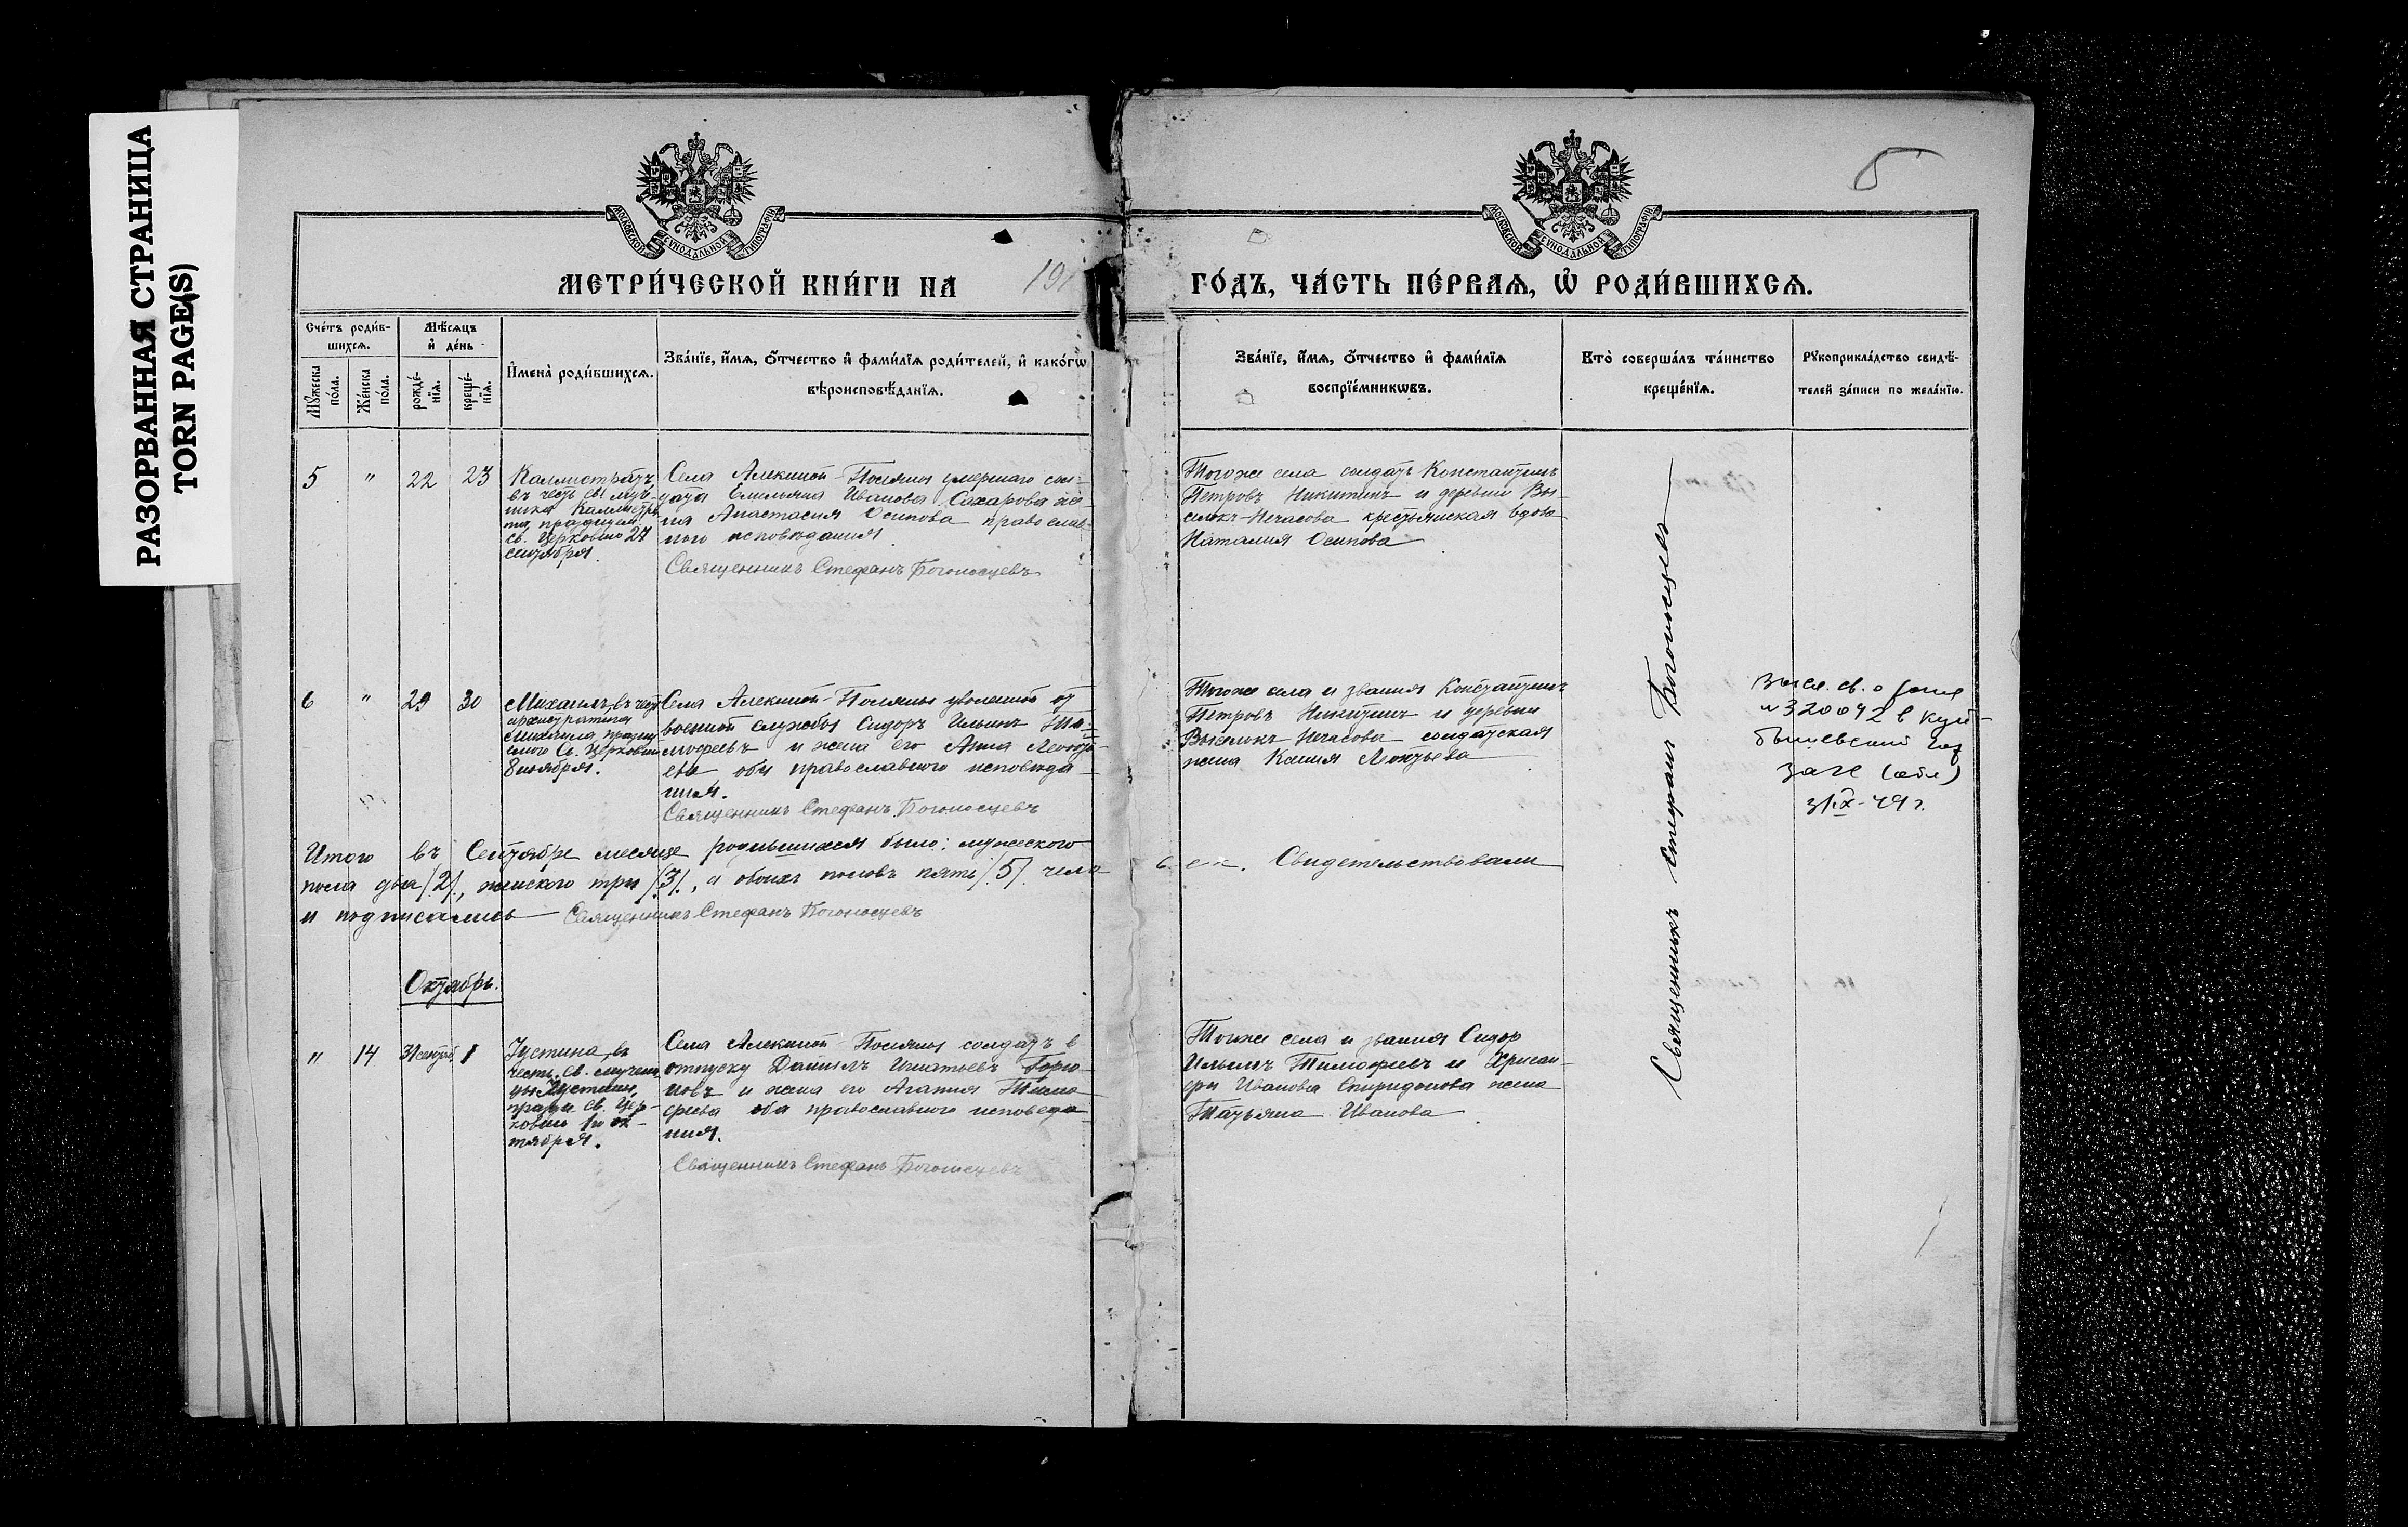 РАЗОРВАННАЯ СТРАНИЦА
TORN PAGE(S)
МОСКОВСКОЙ СУНОДАЛЬНОЙ ТИПОГРАФІИ
МОСКОВСКОЙ СУНОДАЛЬНОЙ ТИПОГРАФІИ
МЕТРИ́ЧЕСКОЙ КНИ́ГИ НА 191
ГО́ДЪ, ЧА́СТЬ ПЕ́РВАЯ, Ѡ҆ РОДИ́ВШИХСЯ.
Сче́тъ роди́в-
шихся.
Мѣ́сяцъ
и҆ де́нь
Мꙋ́жеска по́ла.
Же́нска по́ла.
рожде́-
нїя.
креще́-
нїя.
И҆мена̀ роди́вшихся.
Зва́нїе, и҆́мя, ѻ҆́тчество и҆ фами́лїя роди́телей, и҆ како́гѡ
вѣроисповѣ́данїя.
Зва́нїе, и҆́мя, ѻ҆́тчество и҆ фами́лїя
воспрїе́мникѡвъ.
Кто̀ соверша́лъ та́инство
креще́нїя.
Рꙋкоприкла́дство свидѣ́-
телей за́писи по жела́нїю.
5 " 22 23
Каллистратъ
въ честь св. муч-
ника Каллистра-
та, празднуем.
св. Церковью 27
сентября.
Села Алекиной-Поляны умершаго сол-
дата Емельяна Иванова Сахарова же-
на Анастасия Осипова православ-
ного исповѣдания
Священникъ Стефанъ Богоносцевъ
Тогоже села солдатъ Константинъ
Петровъ Никитинъ и деревни Вы-
селокъ-Нечасова крестьянская вдова
Наталия Осипова
6 " 29 30
Михаилъ, въ честь
архистратига
Михаила, праздну
емого Св. Церковью
8 ноября.
Села Алекиной-Поляны уволенной от
военной службы Сидоръ Ильинъ Ти-
мофеевъ и жена его Анна Леонть-
ева оба православного исповѣда-
ния.
Священникъ Стефанъ Богоносцевъ
Тогоже села и звания Константинъ
Петровъ Никитинъ и деревни
Выселокъ-Нечасова солдатская
жена Ксения Леонтьева
Высл. св. о рожд
№320042 в Куй-
бышевский гор
загс (обл)
3/IX-49 г.
Итого въ Сентябре месяце родившихся было: мужеского
пола два /2/, женского три /3/, а обоихъ половъ пять /5/ чело
век. Свидетельствовали
и подписались Священникъ Стефанъ Богоносцевъ
Священникъ Стефанъ Богоносцевъ
Октябрь.
" 14 31 сентяб. 1
Устина, въ
честь св. мучени
цы Иустины,
праздн. св. Цер-
ковью 1го ок-
тября.
Села Алекиной-Поляны солдатъ в
отпуску Даниилъ Игнатьевъ Горю
новъ и жена его Агапия Тимо
феева оба православного исповеда
ния.
Священникъ Стефанъ Богоносцевъ
Тогоже села и звания Сидор
Ильинъ Тимофеевъ и Хрисан-
фы Иванова Спиридонова жена
Татьяна Иванова